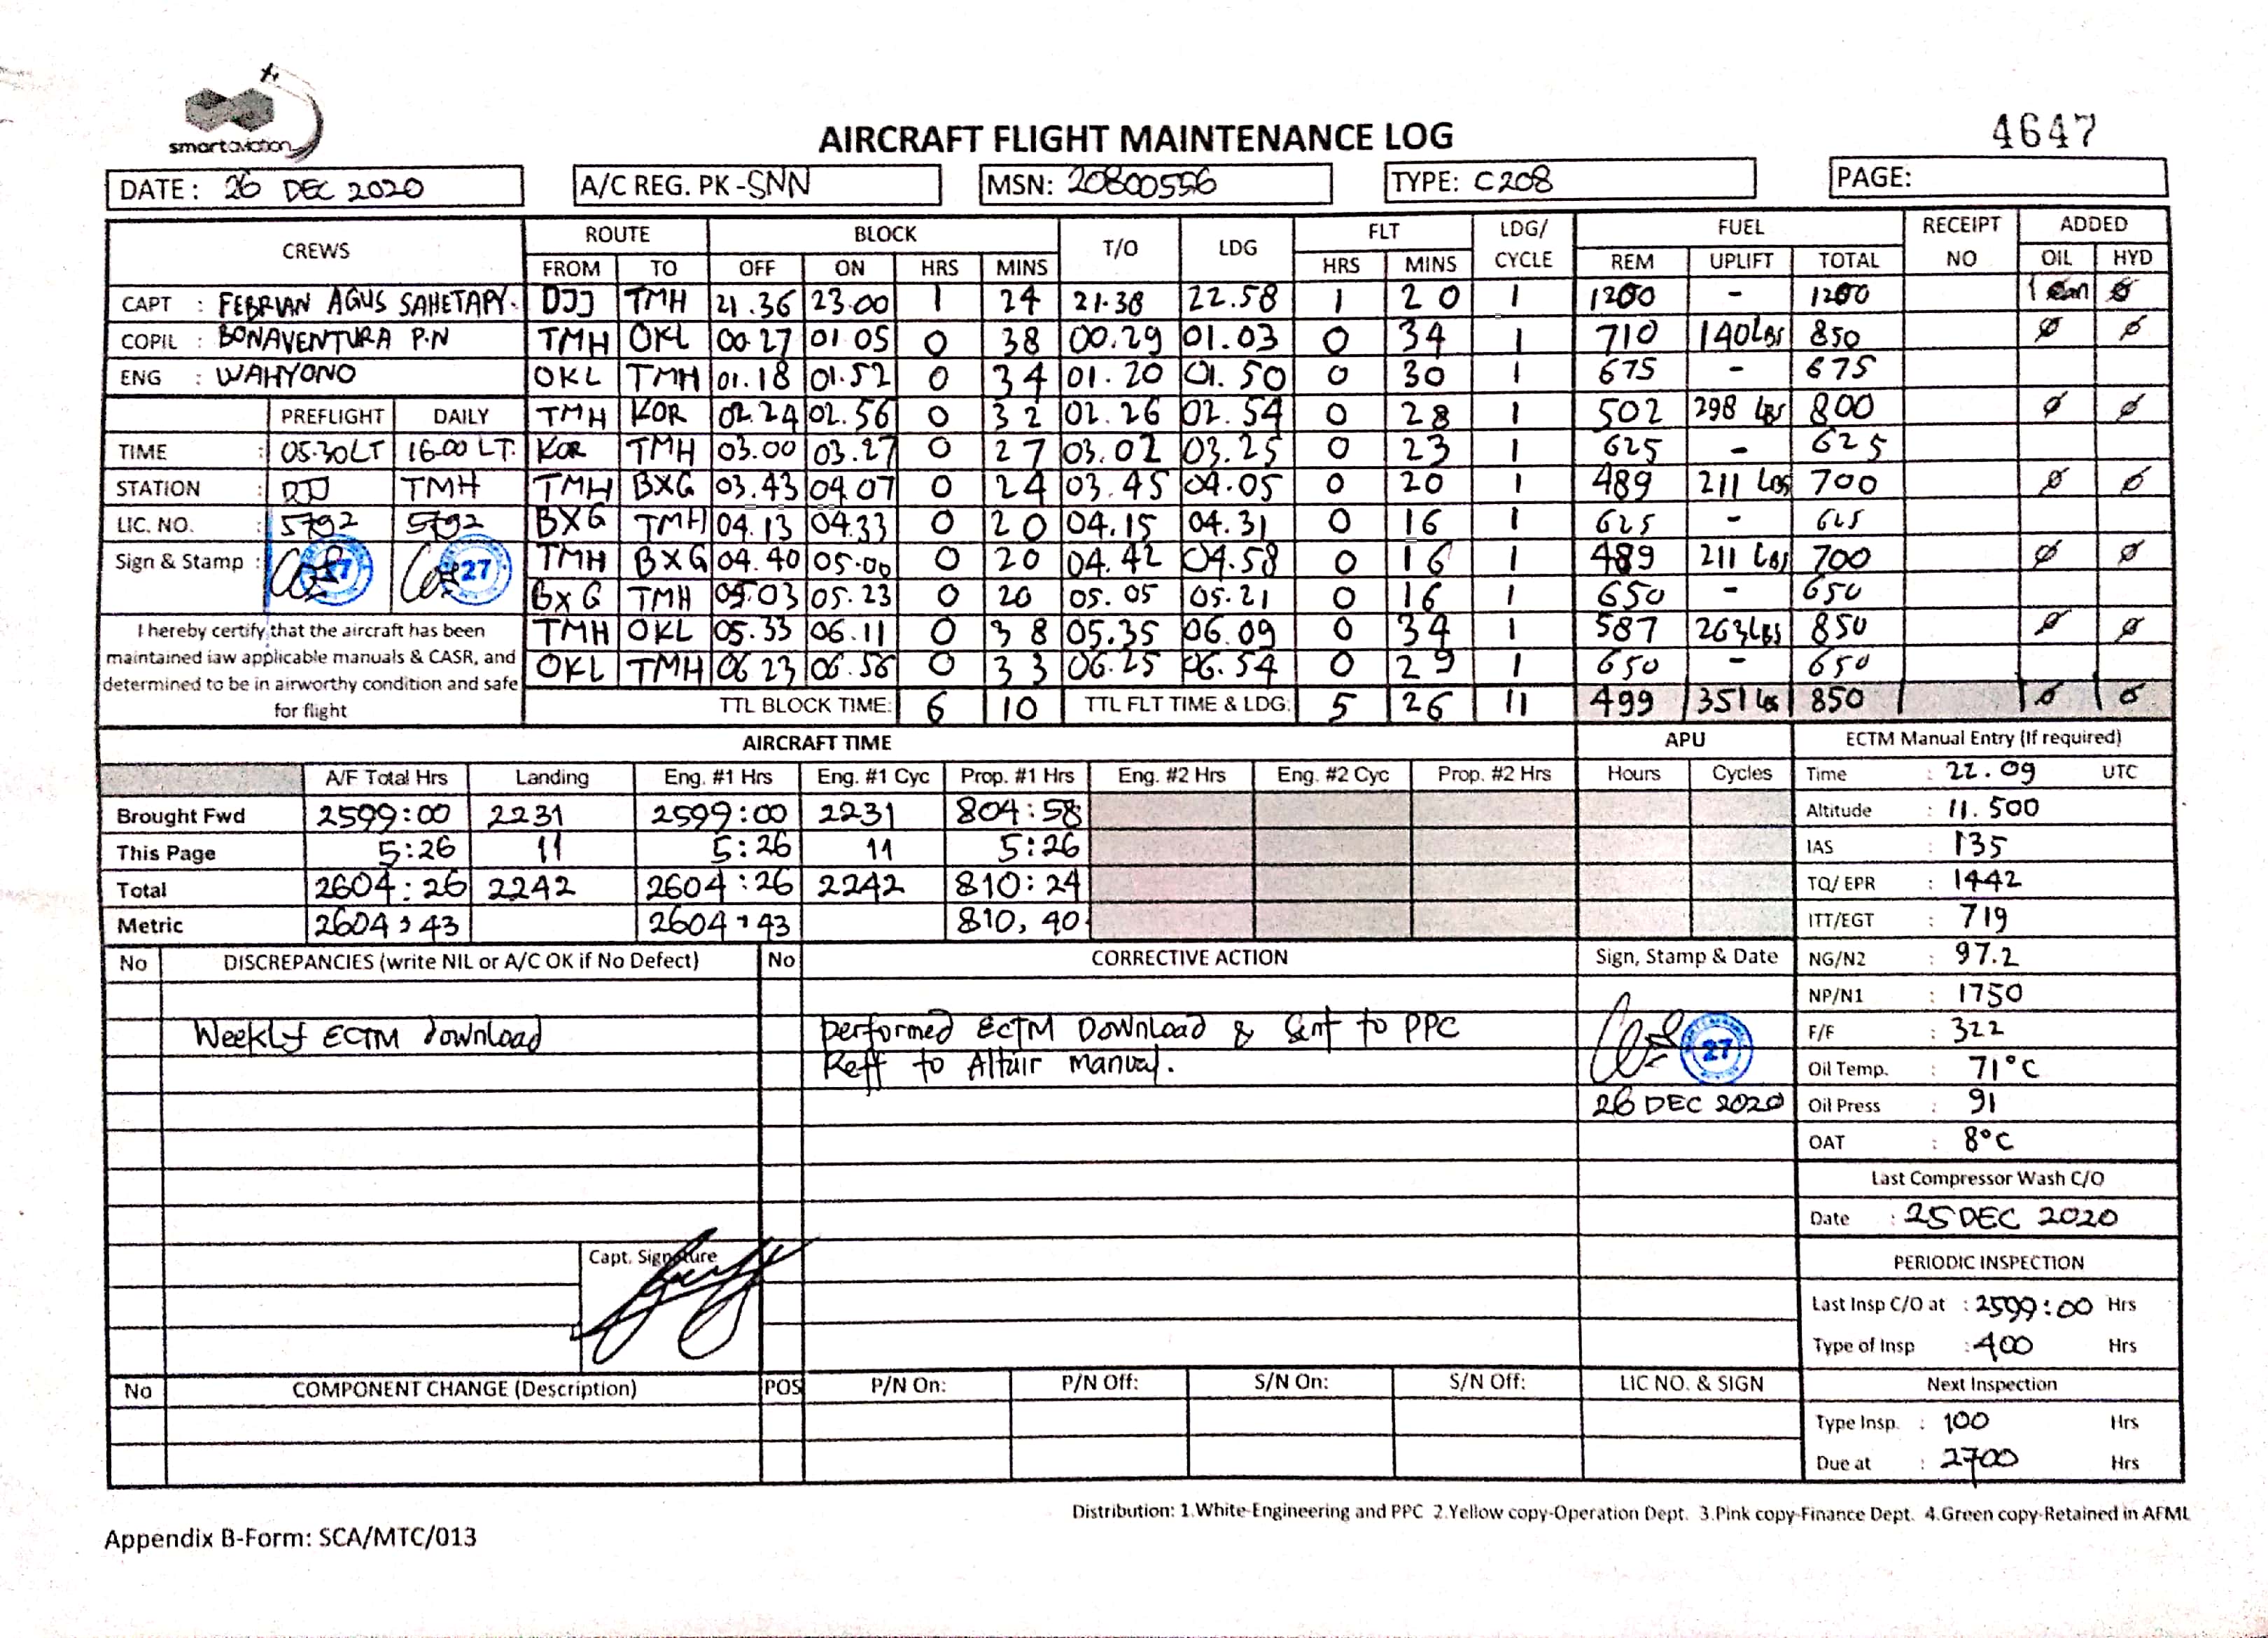 smartaviation
AIRCRAFT FLIGHT MAINTENANCE LOG
4647
DATE: 26 DEC 2020 A/C REG. PK-SNN MSN: 20800556 TYPE: C208 PAGE:
CREWS ROUTE BLOCK T/O LDG FLT LDG/ CYCLE FUEL RECEIPT NO ADDED
FROM TO OFF ON HRS MINS HRS MINS REM UPLIFT TOTAL OIL HYD
CAPT : FEBRIAN AGUS SAHETAPY. DJJ TMH 21.36 23.00 1 24 21.38 22.58 1 20 1 1200 - 1200 1 Can Ø
COPIL : BONAVENTURA P.N TMH OKL 00.27 01 05 0 38 00.29 01.03 0 34 1 710 140Lbs 850 Ø Ø
ENG : WAHYONO OKL TMH 01.18 01.52 0 34 01.20 01.50 0 30 1 675 - 675
PREFLIGHT DAILY TMH KOR 02.24 02.56 0 32 02.26 02.54 0 28 1 502 298 Lbs 800 Ø Ø
TIME : 05.30LT 16.00 LT. KOR TMH 03.00 03.27 0 27 03.02 03.25 0 23 1 625 - 625
STATION : DJJ TMH TMH BXG 03.43 04.07 0 24 03.45 04.05 0 20 1 489 211 Lbs 700 Ø Ø
LIC. NO. : 5792 5792 BXG TMH 04.13 04.33 0 20 04.15 04.31 0 16 1 625 - 625
Sign & Stamp : 27 27 TMH BXG 04.40 05.00 0 20 04.42 04.58 0 16 1 489 211 Lbs 700 Ø Ø
BXG TMH 05.03 05.23 0 20 05.05 05.21 0 16 1 650 - 650
I hereby certify that the aircraft has been TMH OKL 05.33 06.11 0 38 05.35 06.09 0 34 1 587 263Lbs 850 Ø Ø
maintained iaw applicable manuals & CASR, and OKL TMH 06 23 06.56 0 33 06.25 06.54 0 29 1 650 - 650
determined to be in airworthy condition and safe
for flight TTL BLOCK TIME: 6 10 TTL FLT TIME & LDG: 5 26 11 499 351 Lbs 850 Ø Ø
AIRCRAFT TIME APU ECTM Manual Entry (If required)
A/F Total Hrs Landing Eng. #1 Hrs Eng. #1 Cyc Prop. #1 Hrs Eng. #2 Hrs Eng. #2 Cyc Prop. #2 Hrs Hours Cycles Time : 22.09 UTC
Brought Fwd 2599:00 2231 2599:00 2231 804:58 Altitude : 11.500
This Page 5:26 11 5:26 11 5:26 IAS : 135
Total 2604:26 2242 2604:26 2242 810:24 TQ/ EPR : 1442
Metric 2604,43 2604,43 810,40 ITT/EGT : 719
No DISCREPANCIES (write NIL or A/C OK if No Defect) No CORRECTIVE ACTION Sign, Stamp & Date NG/N2 : 97.2
NP/N1 : 1750
Weekly ECTM download performed ECTM Download & Sent to PPC 27 F/F : 322
Reff to Altair manual. Oil Temp. : 71°C
26 DEC 2020 Oil Press : 91
OAT : 8°C
Last Compressor Wash C/O
Date : 25 DEC 2020
Capt. Signature PERIODIC INSPECTION
Last Insp C/O at : 2599:00 Hrs
Type of Insp : 400 Hrs
No COMPONENT CHANGE (Description) POS P/N On: P/N Off: S/N On: S/N Off: LIC NO. & SIGN Next Inspection
Type Insp. : 100 Hrs
Due at : 2700 Hrs
Distribution: 1.White-Engineering and PPC 2.Yellow copy-Operation Dept. 3.Pink copy-Finance Dept. 4.Green copy-Retained in AFML
Appendix B-Form: SCA/MTC/013